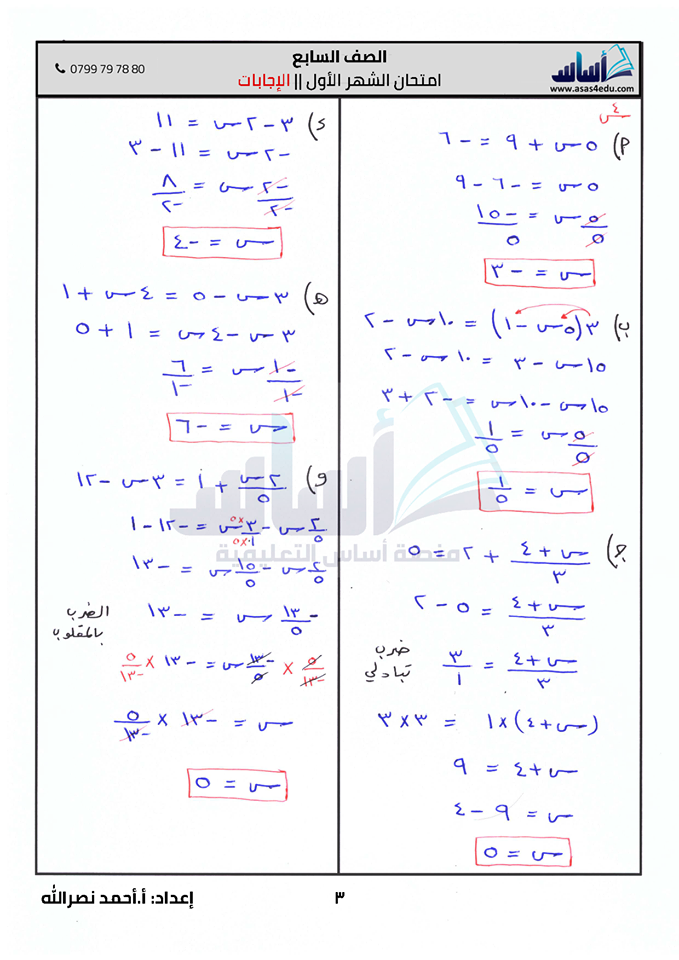 الصف السابع
امتحان الشهر الأول || الإجابات
0799 79 78 80
أساس
www.asas4edu.com
س٤
أ) ٥س + ٩ = -٦
٥س = -٦ - ٩
٥س/٥ = -١٥/٥
س = -٣
ب) ٣(٥س - ١) = ١٠س - ٢
١٥س - ٣ = ١٠س - ٢
١٥س - ١٠س = -٢ + ٣
٥س/٥ = ١/٥
س = ١/٥
ج) (س + ٤)/٣ + ٢ = ٥
(س + ٤)/٣ = ٥ - ٢
(س + ٤)/٣ = ٣/١ ضرب تبادلي
(س + ٤) × ١ = ٣ × ٣
س + ٤ = ٩
س = ٩ - ٤
س = ٥
د) ٣ - ٢س = ١١
-٢س = ١١ - ٣
-٢س/-٢ = ٨/-٢
س = -٤
هـ) ٣س - ٥ = ٤س + ١
٣س - ٤س = ١ + ٥
-١س/-١ = ٦/-١
س = -٦
و) ٢س/٥ + ١ = ٣س - ١٢
٢/٥ س - ٣×٥/١×٥ س = -١٢ - ١
٢/٥ س - ١٥/٥ س = -١٣
-١٣/٥ س = -١٣ الضرب بالمقلوب
٥/-١٣ × -١٣/٥ س = -١٣ × ٥/-١٣
س = -١٣ × ٥/-١٣
س = ٥
أساس
منصة أساس التعليمية
إعداد: أ.أحمد نصرالله
٣